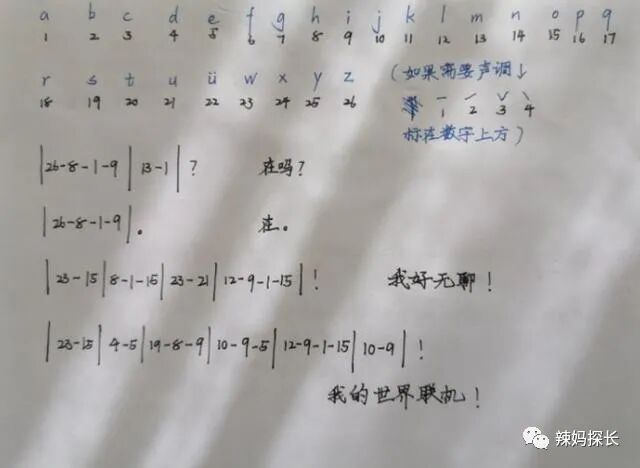 a b c d e f g h i j k l m n o p q
1 2 3 4 5 6 7 8 9 10 11 12 13 14 15 16 17
r s t u ü w x y z (如果需要声调↓
18 19 20 21 22 23 24 25 26 1 2 3 4
标注数字上方)
|26-8-1-9|13-1|? 在吗?
|26-8-1-9|。 在。
|23-15|8-1-15|23-21|12-9-1-15|! 我好无聊!
|23-15|4-5|19-8-9|10-9-5|12-9-1-15|10-9|!
我的世界联机!
辣妈探长